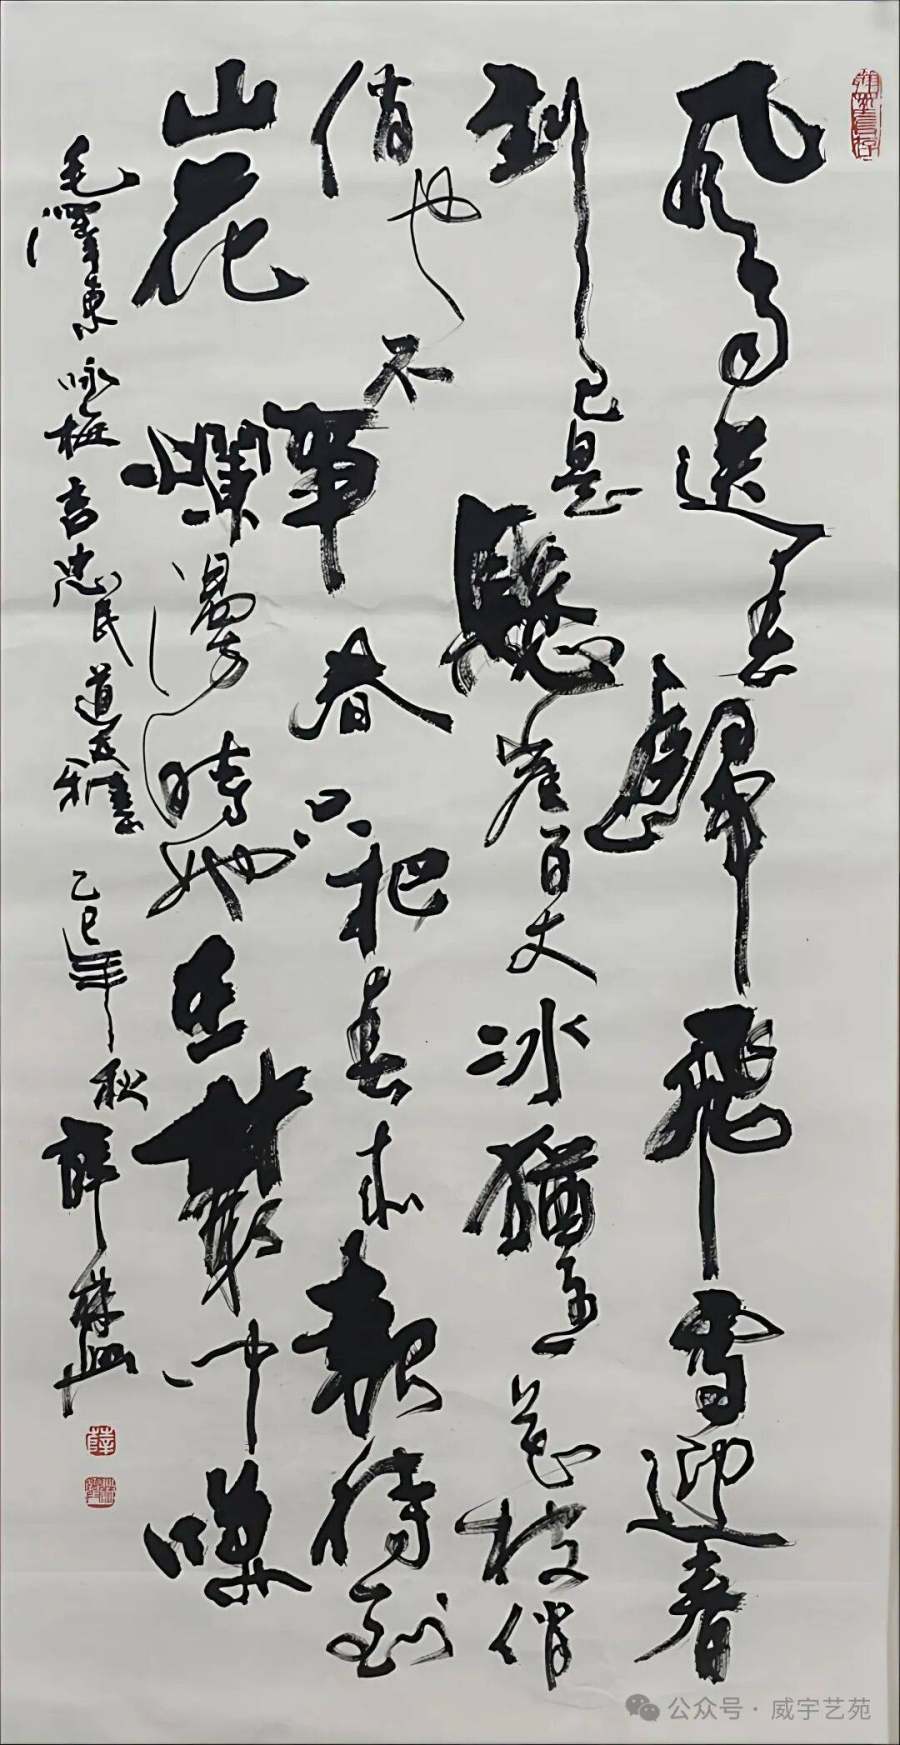 风雨送春歸飛雪迎春
到已是懸崖百丈冰猶有花枝俏
俏也不爭春只把春来報待到
山花爛漫時她在叢中咲
毛澤東咏梅 吉忠民道友雅意 乙巳年秋 薛林興
薛
公众号·威宇艺苑